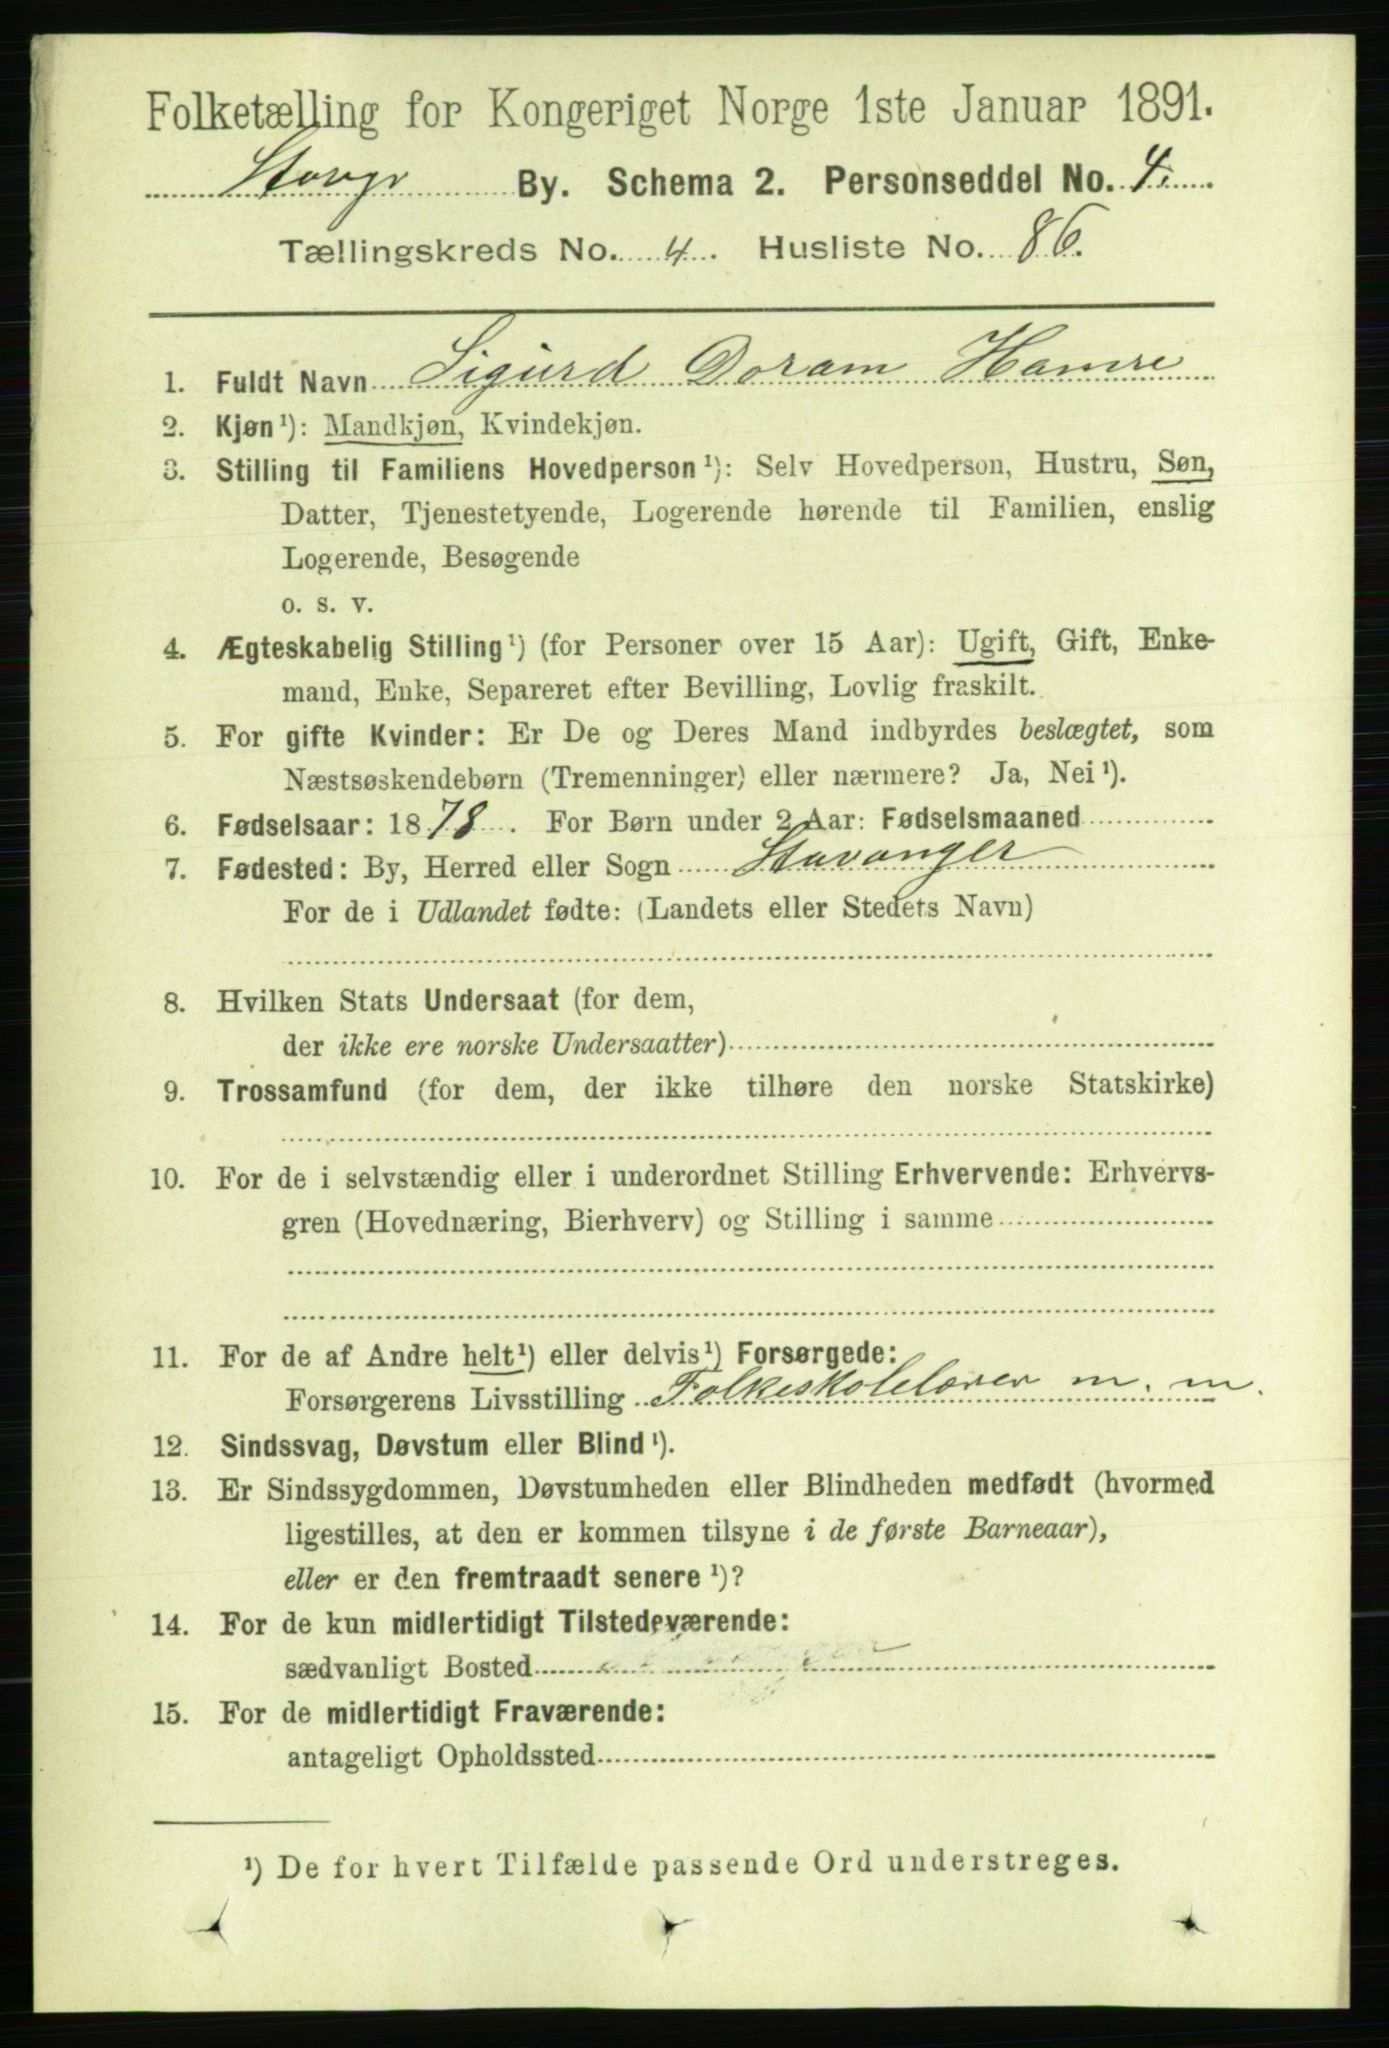 Folketælling for Kongeriget Norge 1ste Januar 1891.
Stavgr By. Schema 2. Personseddel No. 4.
Tællingskreds No. 4. Husliste No. 86.
1. Fuldt Navn Sigurd Doram Hamre
2. Kjøn¹): Mandkjøn, Kvindekjøn.
3. Stilling til Familiens Hovedperson¹): Selv Hovedperson, Hustru, Søn,
Datter, Tjenestetyende, Logerende hørende til Familien, enslig
Logerende, Besøgende
o. s. v.
4. Ægteskabelig Stilling¹) (for Personer over 15 Aar): Ugift, Gift, Enke-
mand, Enke, Separeret efter Bevilling, Lovlig fraskilt.
5. For gifte Kvinder: Er De og Deres Mand indbyrdes beslægtet, som
Næstsøskendebørn (Tremenninger) eller nærmere? Ja, Nei¹).
6. Fødselsaar: 1878. For Børn under 2 Aar: Fødselsmaaned
7. Fødested: By, Herred eller Sogn Stavanger
For de i Udlandet fødte: (Landets eller Stedets Navn)
8. Hvilken Stats Undersaat (for dem,
der ikke ere norske Undersaatter)
9. Trossamfund (for dem, der ikke tilhøre den norske Statskirke)
10. For de i selvstændig eller i underordnet Stilling Erhvervende: Erhvervs-
gren (Hovednæring, Bierhverv) og Stilling i samme
11. For de af Andre helt¹) eller delvis¹) Forsørgede:
Forsørgerens Livsstilling Folkeskolelærer m. m.
12. Sindssvag, Døvstum eller Blind¹).
13. Er Sindssygdommen, Døvstumheden eller Blindheden medfødt (hvormed
ligestilles, at den er kommen tilsyne i de første Barneaar),
eller er den fremtraadt senere¹)?
14. For de kun midlertidigt Tilstedeværende:
sædvanligt Bosted
15. For de midlertidigt Fraværende:
antageligt Opholdssted
¹) De for hvert Tilfælde passende Ord understreges.